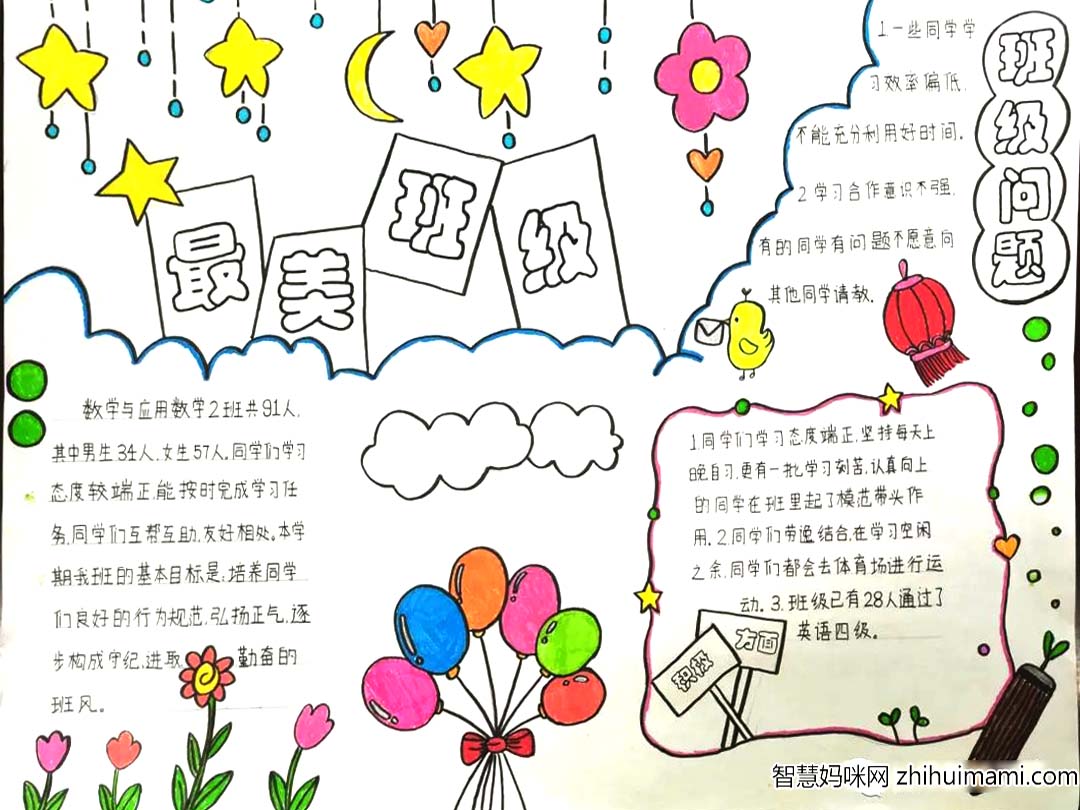 最美班级
数学与应用数学2班共91人,
其中男生34人,女生57人。同学们学习
态度较端正,能按时完成学习任
务,同学们互帮互助,友好相处。本学
期我班的基本目标是:培养同学
们良好的行为规范,弘扬正气,逐
步构成守纪,进取,勤奋的
班风。
班级问题
1一些同学学
习效率偏低,
不能充分利用好时间。
2学习合作意识不强,
有的同学有问题不愿意向
其他同学请教。
1.同学们学习态度端正,坚持每天上
晚自习,更有一批学习刻苦,认真向上
的同学在班里起了模范带头作
用。2.同学们劳逸结合,在学习空闲
之余,同学们都会去体育场进行运
动。3.班级已有28人通过了
英语四级。
积极
方面
智慧妈咪网 zhihuimami.com